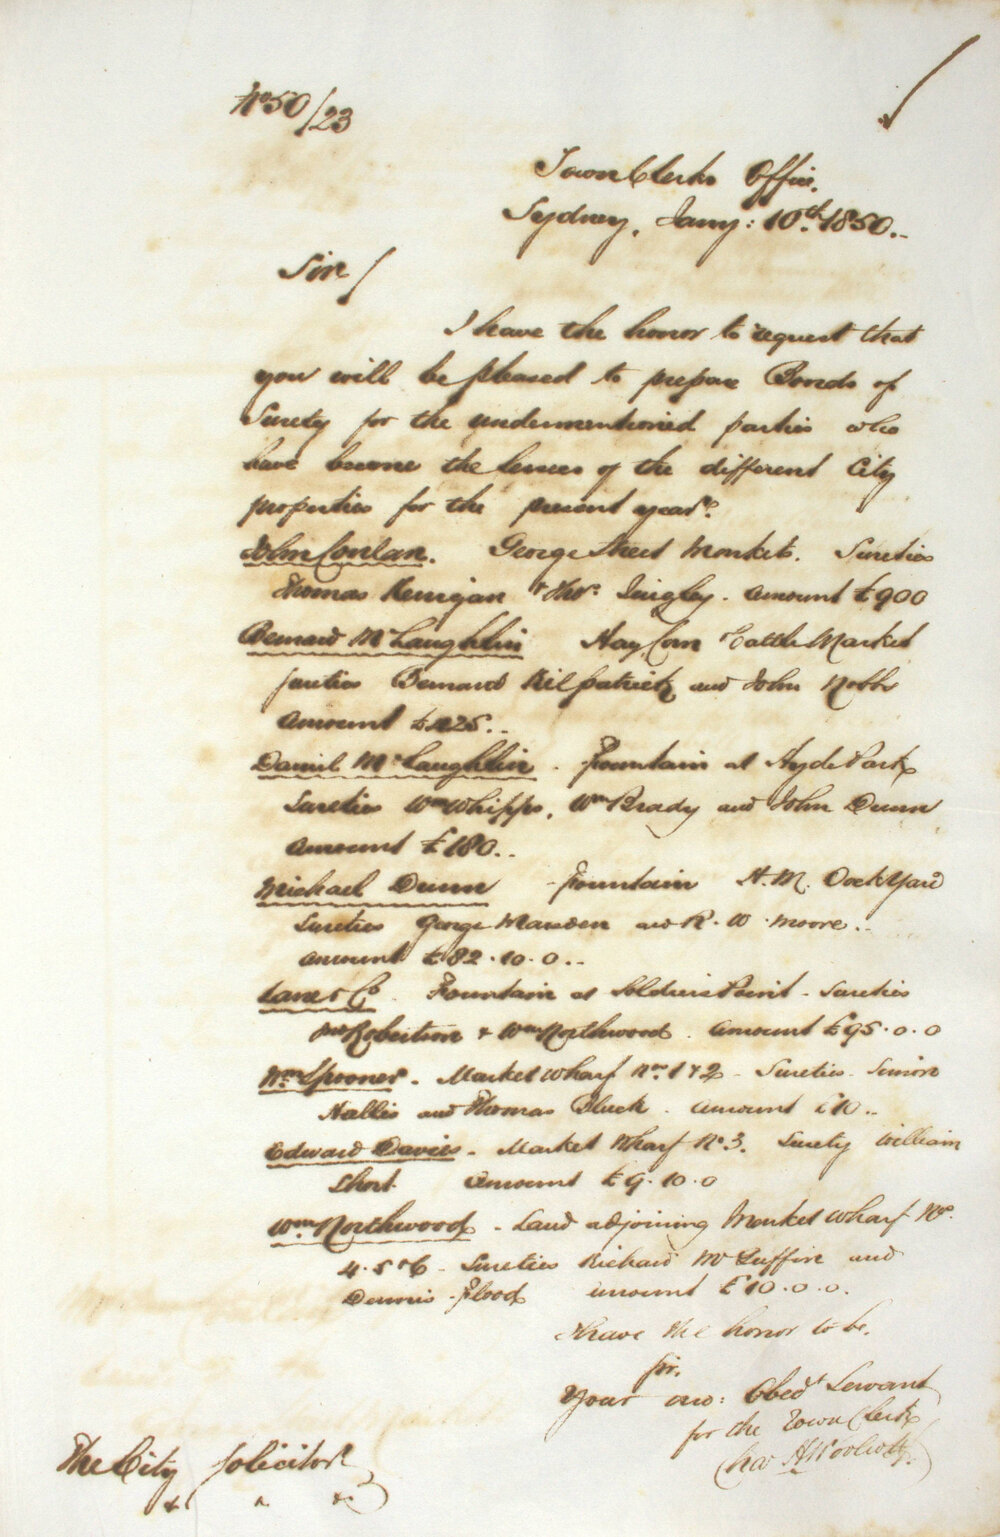 No 50/23
Town Clerks Office,
Sydney, Jany: 10th 1850.
Sir/
I have the honor to request that
you will be pleased to prepare Bonds of
Surety for the undermentioned parties who
have become the lessees of the different City
properties for the present year.
John Conlan. George Street Markets. Sureties
Thomas Kerrigan & Thos. Quigley. Amount £900
Bernard McLaughlin Hay Corn & Cattle Market
sureties Bernard Kilpatrick and John Nobbs
Amount
Daniel McLaughlin. Fountain at Hyde Park
Sureties Wm Whipps, Wm Brady and John Dunn
Amount £180..
Michael Dunn Fountain H.M. Dock Yard
Sureties George Marsden and R. W. Moore..
Amount £82.10.0..
Lane & Co. Fountain at Soldiers Point. Sureties
Robertson & Wm Northwood. Amount £95.0.0
Wm Spooner. Market Wharf Nos. 1 & 2. Sureties. Simon
Hallis and Thomas Cluck. Amount £10..
Edward Davies. Market Wharf No. 3. Surety William
Short. Amount £9.10.0
Wm Northwood. Land adjoining Market Wharf Nos.
4.5 & 6. Sureties Richard and
Dennis Flood amount £10.0.0.
I have the honor to be,
Sir,
Your mo: Obedt Servant
for the Town Clerk
Chas H Woolcott
The City Solicitor
&c " &c